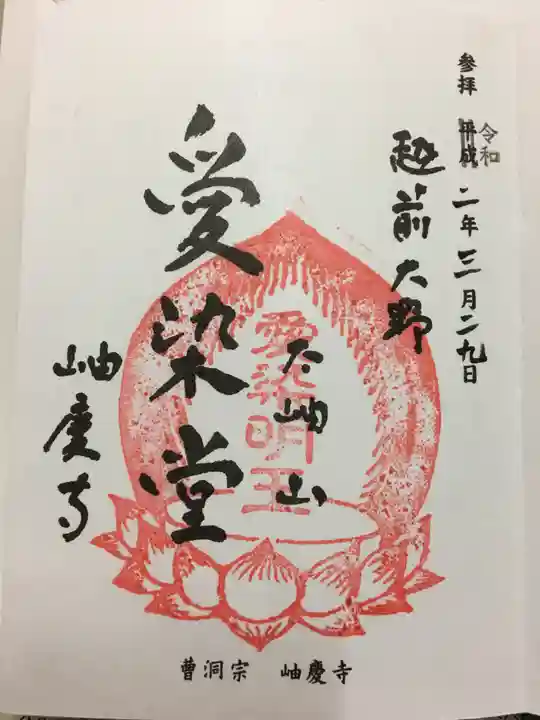 参拝 平成 令和 二年三月二九日
越前大野
大岫山
愛染明王
愛染堂
岫慶寺
曹洞宗 岫慶寺